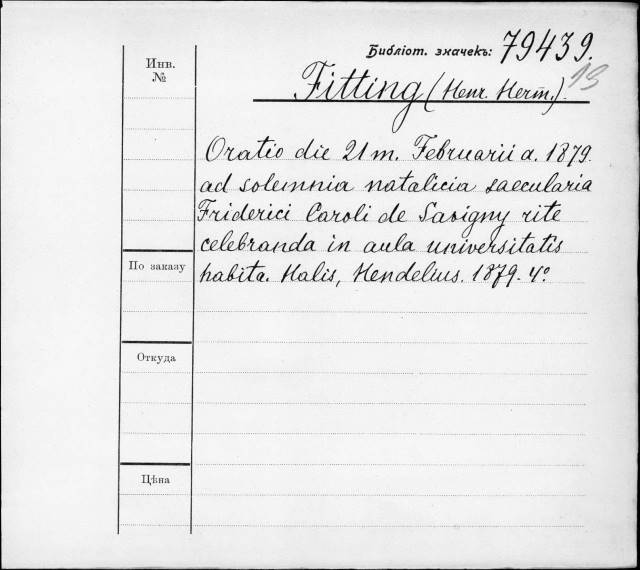 Инв.
№
Библіот. значекъ: 79439.
13
Fitting (Henr. Herm̄.).
Oratio die 21 m. Februarii a. 1879.
ad solemnia natalicia saecularia
Friderici Caroli de Savigny rite
celebranda in aula universitatis
habita. Halis, Hendelius. 1879. 4°.
По заказу
Откуда
Цѣна